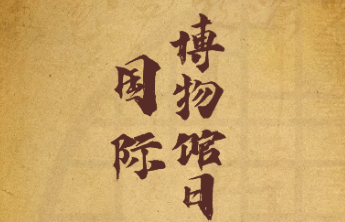 国际
博物馆日